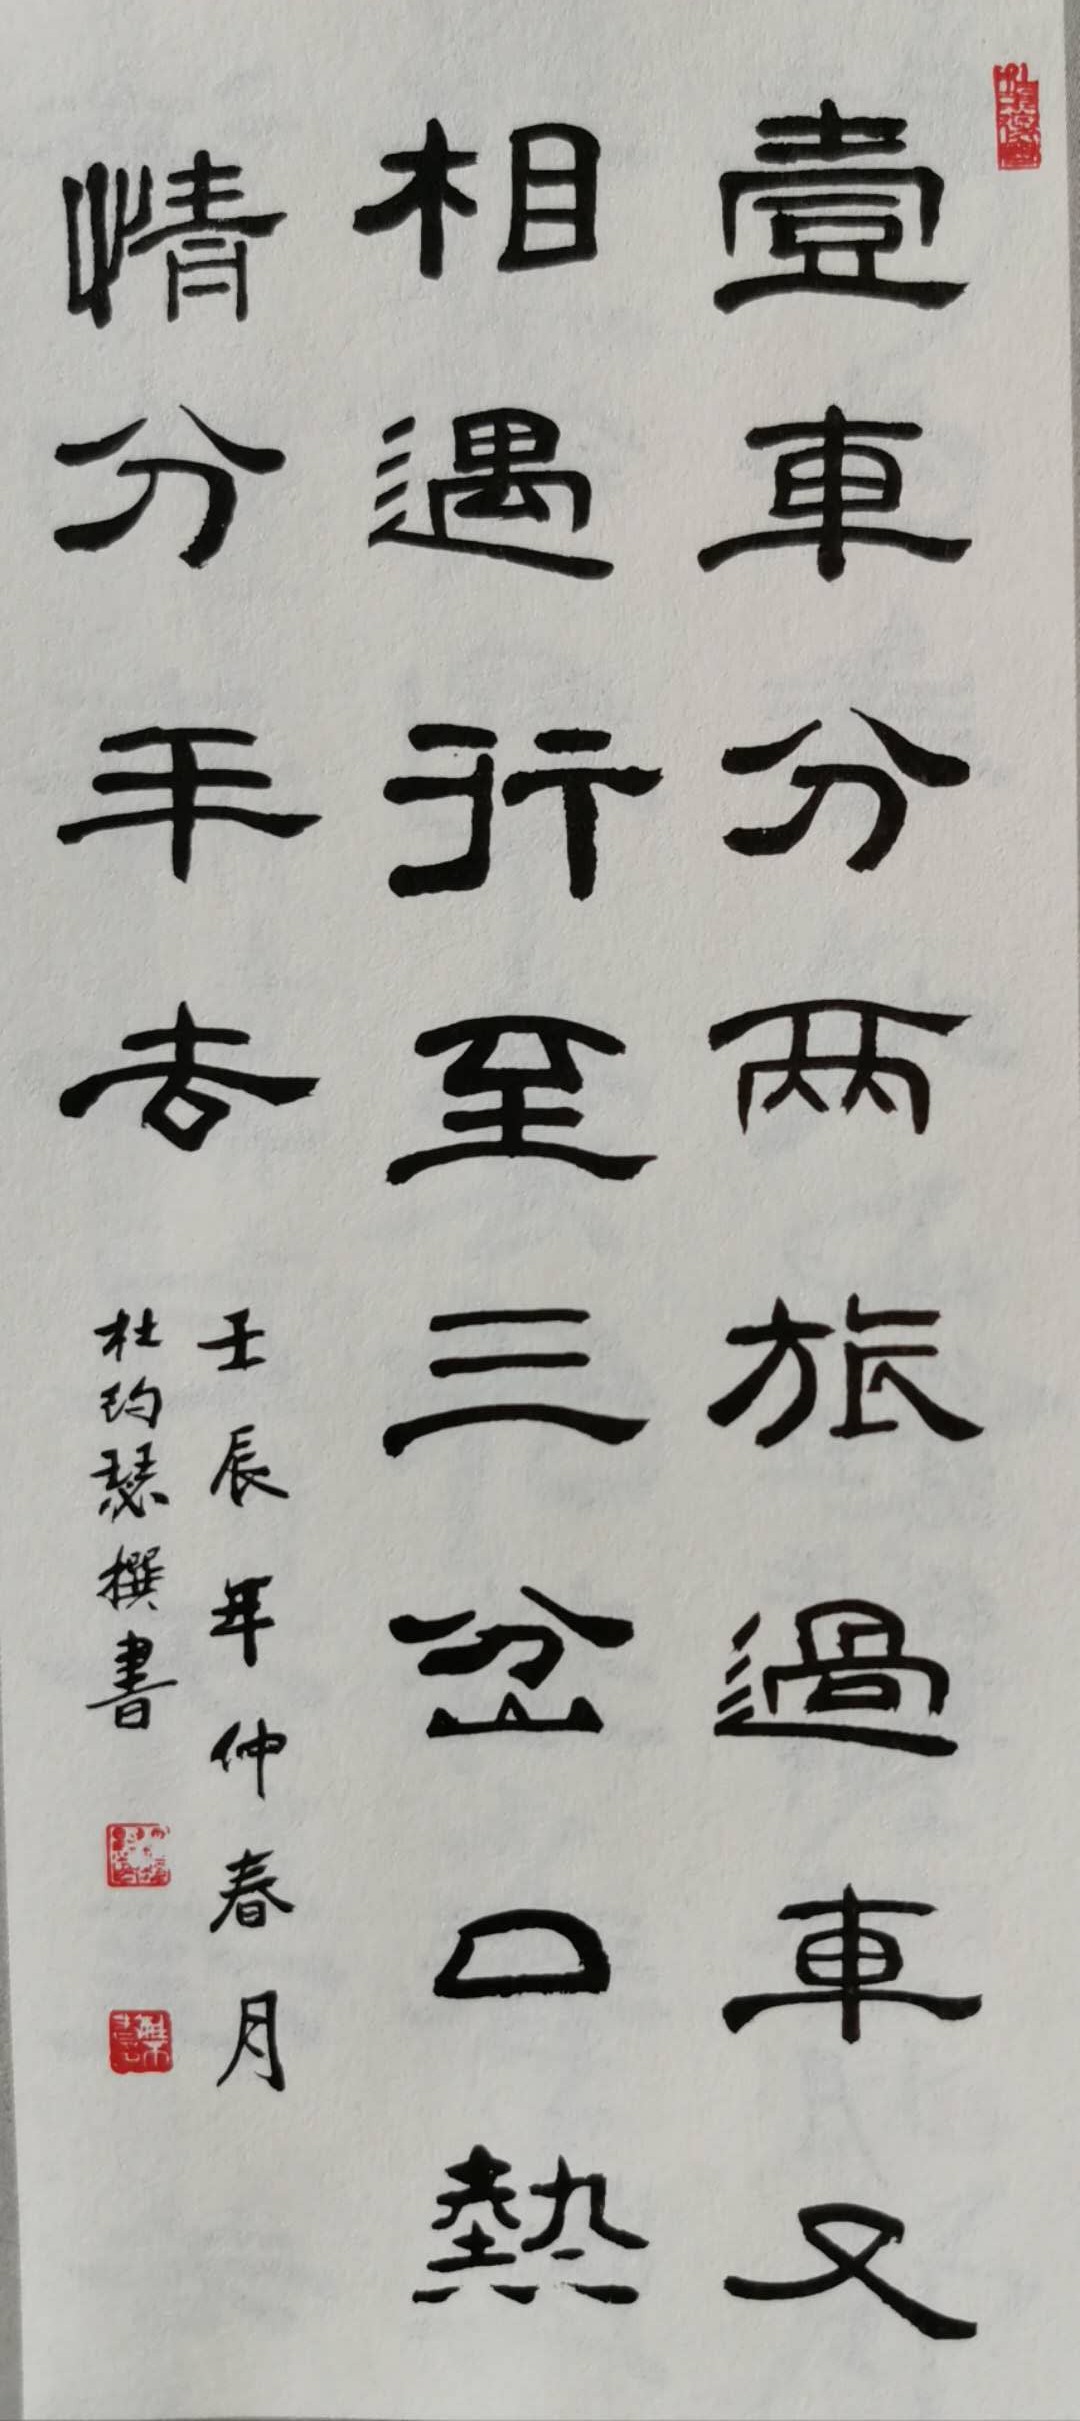 壹車分兩旅過車又
相遇行至三岔口熱
情分手去
壬辰年仲春月
杜玓瑟撰書